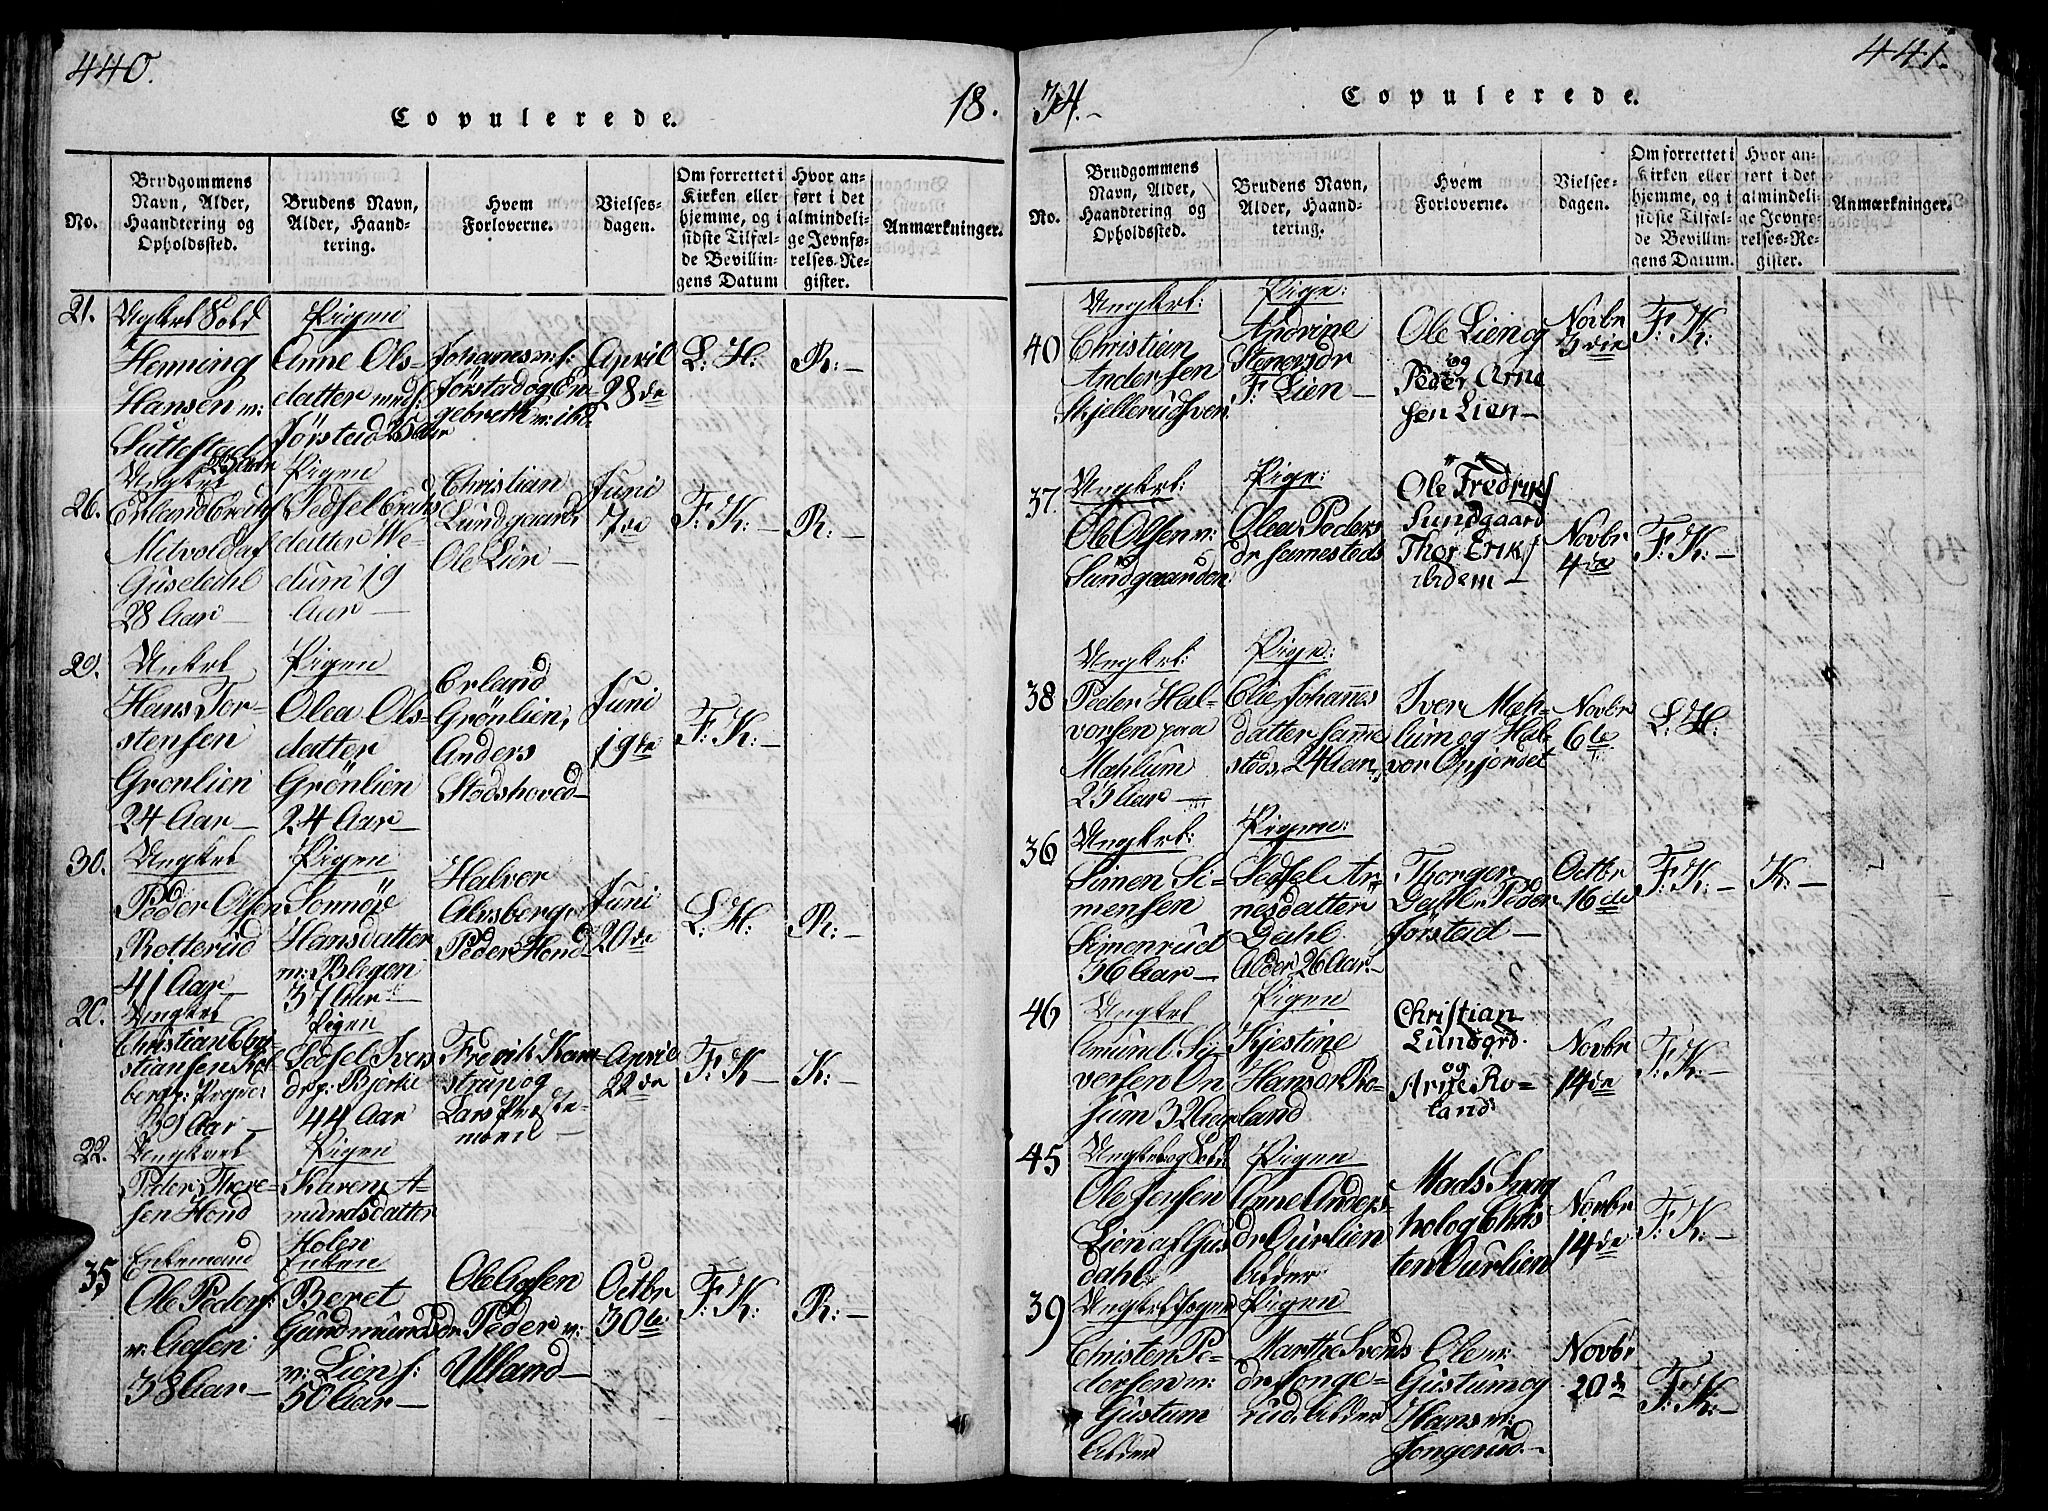 440.
18.
Copulerede.
No.
Brudgommens Navn, Alder, Haandtering og Opholdssted.
Brudens Navn, Alder, Haandtering.
Hvem Forloverne.
Vielsesdagen.
Om forrettet i Kirken eller hjemme, og i sidste Tilfælde Bevillingens Datum
Hvor anført i det almindelige Jevnførelses-Register.
Anmærkninger.
21.
Ugkrl Sold
Henning
Hansen m:
Suttestad
Pigen
Anne Olsdatter
Jørstad 25 Aar
Johannes m: f:
Jørstad og Engebreth m: ibd.
April
28de
L: H:
R:—
26.
Ungkrl
Erland
Mitvold af
Gusedahl
28 Aar—
Pigen
Sedsel Eriksdatter Wedum 19
Aar—
Christian
Lundgaard
Ole Lien—
Juni
7de
F: K:—
R:—
29.
Unkrl
Hans Torstensen
Grønlien
24 Aar—
Pigen
Olea Olsdatter
Grönlien
24 Aar—
Erland
Grönlien,
Anders
Stadshoved—
Juni
19de
F: K:—
30.
Ungkrl
Peder Olsen
Rotterud
41 Aar—
Pigen
Hansdatter
m: Blegen
37 Aar—
Halvor
Alvsberg,
Peder Hond
Juni
20de
L: H:
R:—
20.
Ungkrl
Christian Christiansen
39 Aar—
Pigen
Sedsel Iversdr p: Björke
44 Aar
Fredrik Kamstrup og
Lars
April
22de
F: K—
K:—
22.
Ungkarl
Peder Theresen Hond
Pigen
Karen Amundsdatter
Holen
35
Enkemand
Ole Peders:
m: Aasen
38 Aar—
Enken
Beret
Gundmundsdr
m: Lien f:
50 Aar—
Ole Aasen
Peder m:
Ulland—
Octbr
30te
F: K:
R:—
34.—
441.
Copulerede.
No.
Brudgommens Navn, Alder, Haandtering og Opholdssted.
Brudens Navn, Alder, Haandtering.
Hvem Forloverne.
Vielsesdagen.
Om forrettet i Kirken eller hjemme, og i sidste Tilfælde Bevillingens Datum.
Hvor anført i det almindelige Jevnførelses-Register.
Anmærkninger.
40
Ungkrl:
Christian
Andersen
Skjellerudsven
Pige:
Andrine
Stenersdr
F. Lien
Ole Lien og
Peder Arnesen Lien—
Novbr
3die
F: K:
37.
Ungkrl:
Ole Olsen m:
Sundgaarden
Pige:
Olea Pedersdr Semmesteds
Ole Fredrigs
Sundgaard
Thor Eriks
ibidem—
Novbr
4de
F: K:—
38
Ungkrl:
Peder Halvorsen paa
Mæhlum
23 Aar—
Pige:
Elie Johannesdatter Semmesteds, 24 Aar
Iver Mæhlum og Halvor Opjordet
Novbr
6te
L: H:
36
Ungkrl:
Simen Simensen
Simonrud
36 Aar—
Pigen:
Sedsel Arnesdatter
Dahl
Alder 26 Aar—
Thorger
Dahl. Peder
Jørstad—
Octbr
16de
F: K:—
K:—
46
Ungkrl
Amund Syversen Onsum 32 Aar
Pigen
Kjestine
Hansdr Roland
Christian
Lundgrd.
og
Arne Roland:
Novbr
14de
F: K:—
45
Ungkrl og Sold.
Ole Jensen
Lien af Gusdahl
Pigen
Anne Andersdr Ourlien
Alder
Mads
og Christen Ourlien
Novbr
14de
F: K:—
39
Ungkrl
Christen Pedersen m:
Gustum
Alder
Pigen
Marthe Svendsdr Jongerud. Alder
Ole m:
Gustum og
Hans m:
Jongerud—
Novbr
20de
F: K:—